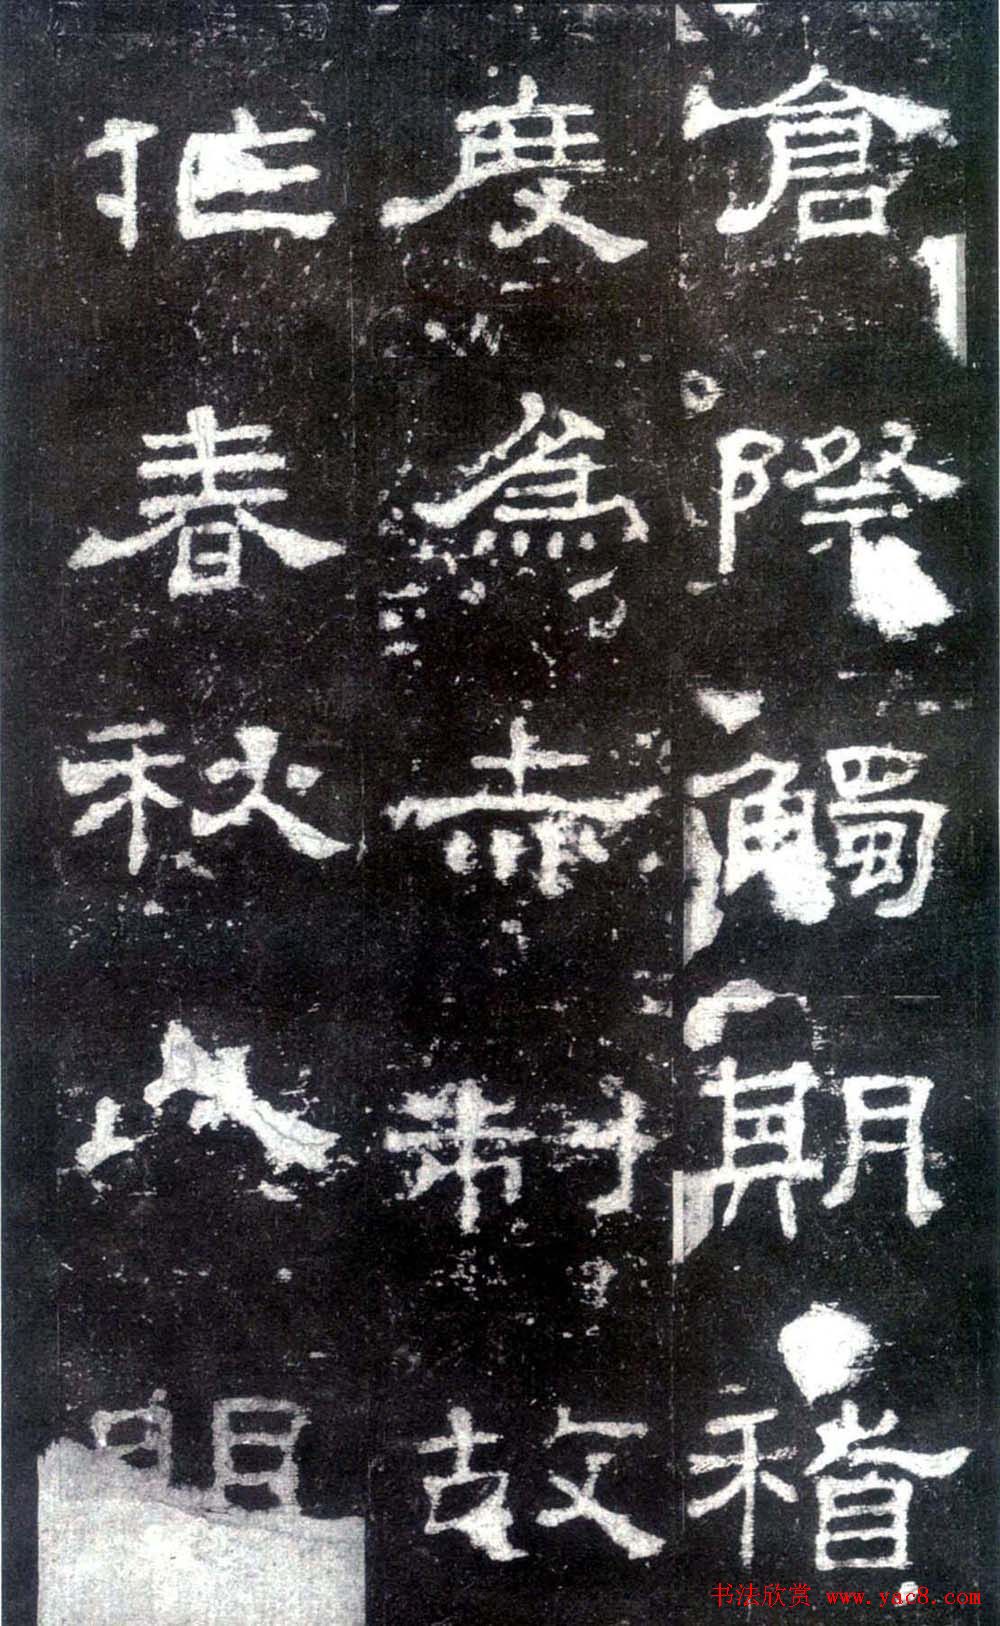 倉際觸期稽
度爲赤制故
作春秋以明
书法欣赏 www.yac8.com